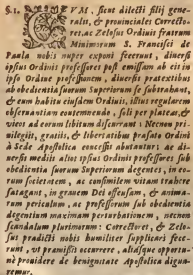 § 1. CVM, sicut dilecti filij gene-
rales, & prouinciales Correcto-
res, ac Zelosus Ordinis fratrum
Minimorum S. Francisci de
Paula nobis nuper exponi fecerunt, diuersi
ipsius Ordinis professores post emissam ab eis in
ipso Ordine professionem, diuersis prætextibus
ab obedientia suorum Superiorum se subtrahant,
& cum habitu eiusdem Ordinis, illius regularem
obseruantiam contemnendo, seu per plateas, &
vicos ad eorum libitum discurrant. Necnon pri-
uilegijs, gratijs, & libertatibus præfato Ordini
à Sede Apostolica concessis abutantur; ac di-
uersis medijs alios ipsius Ordinis professores sub
obedientia suorum Superiorum degentes, in eo-
rum societatem, ac consimilem vitam trahere
satagant, in grauem Dei offensam, ac anima-
rum periculum, ac professorum sub obedientia
degentium maximam perturbationem, necnon
scandalum plurimorum: Correctores, & Zelo-
sus prædicti nobis humiliter supplicari fece-
runt, vt præmissis occurrere, aliasque opportu-
nè prouidere de benignitate Apostolica digna-
remur.